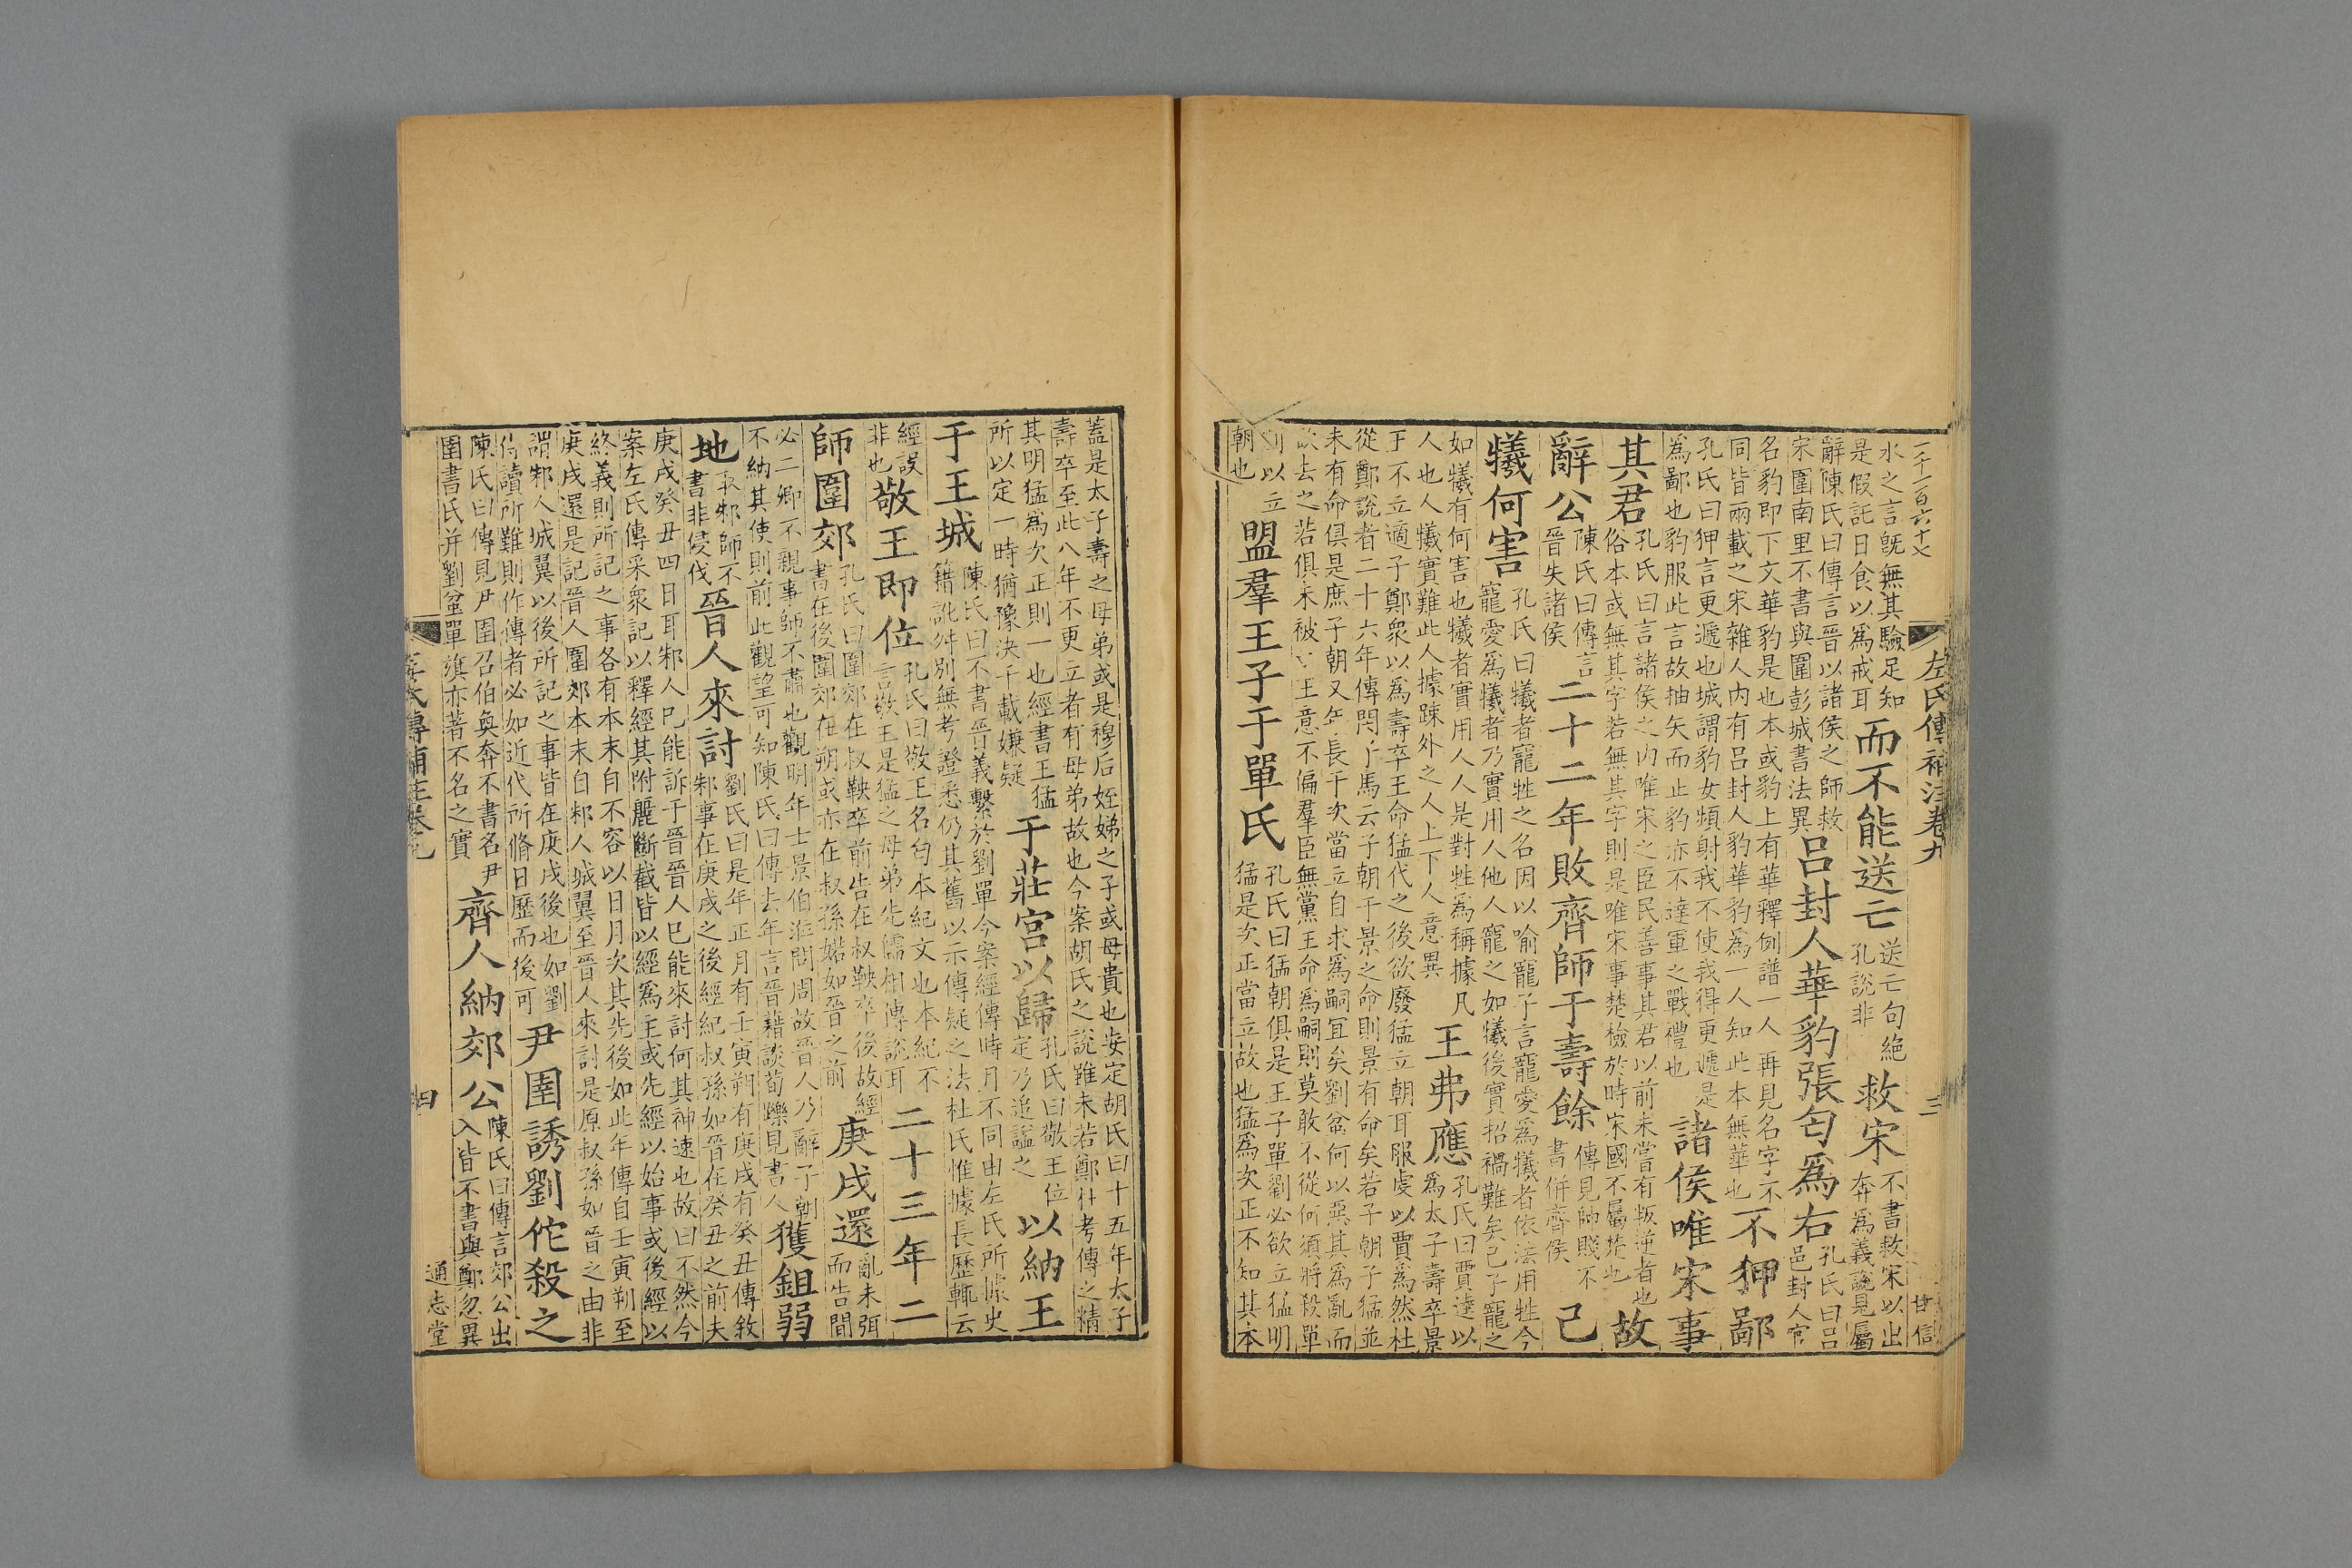 二千一百六十七
左氏傳補注卷九
三
甘信
水之言旣無其驗足知
是假託日食以爲戒耳
而不能送亡
送亡句絶
孔說非
救宋
不書救宋以出
奔爲義說見屬
辭陳氏曰傳言晉以諸侯之師救
宋圍南里不書與圍彭城書法異
呂封人華豹張匄爲右
孔氏曰呂
邑封人官
名豹即下文華豹是也本或豹上有華釋例譜一人再見名字不
同皆兩載之宋雜人内有呂封人豹華豹爲一人知此本無華也
不狎鄙
孔氏曰狎言更遞也城謂豹女頻射我不使我得更遞是
爲鄙也豹服此言故抽矢而止豹亦不達軍之戰禮也
諸侯唯宋事
其君
孔氏曰言諸侯之内唯宋之臣民善事其君以前未嘗有叛逆者也
俗本或無其字若無其字則是唯宋事楚檢於時宋國不屬楚也
故
辭公
陳氏曰傳言
晉失諸侯
二十二年敗齊師于壽餘
傳見帥賤不
書併齊侯
己
犧何害
孔氏曰犧者寵牲之名因以喻寵子言寵愛爲犧者依法用牲今
寵愛爲犧者乃實用人他人寵之如犧後實招禍難矣已子寵之
如犧有何害也犧者實用人人是對牲爲稱據凡
人也人犧實難此人據踈外之人上下人意異
王弗應
孔氏曰賈逵以
爲太子壽卒景
王不立適子鄭衆以爲壽卒王命猛代之後欲廢猛立朝耳服虔以賈爲然杜
從鄭說者二十六年傳閔子馬云子朝干景之命則景有命矣若子朝子猛並
未有命俱是庶子朝又年長于次當立自求爲嗣冝矣劉盆何以惡其爲亂而
欲去之若俱未被王意不偏羣臣無黨王命爲嗣則莫敢不從何須將殺單
劉以立
朝也
盟羣王子于單氏
孔氏曰猛朝俱是王子單劉必欲立猛明
猛是次正當立故也猛爲次正不知其本
蓋是太子壽之母弟或是穆后姪娣之子或母貴也安定胡氏曰十五年太子
壽卒至此八年不更立者有母弟故也今案胡氏之說雖未若鄭杜考傳之精
其明猛爲次正則一也經書王猛
所以定一時猶豫決千載嫌疑
于莊宮以歸
孔氏曰敬王位
定乃追謚之
以納王
于王城
陳氏曰不書晉義繫於劉單今案經傳時月不同由左氏所據史
籍訛舛别無考證悉仍其舊以示傳疑之法杜氏惟據長歷輒云
經誤
非也
敬王即位
孔氏曰敬王名匄本紀文也本紀不
言敬王是猛之母弟先儒相傳說耳
二十三年二
師圍郊
孔氏曰圍郊在叔鞅卒前告在叔鞅卒後故經
書在後圍郊在朔或亦在叔孫婼如晉之前
庚戌還
亂未弭
而告間
必二卿不親事師不肅也觀明年士景伯涖問周故晉人乃辭子朝
不納其使則前此觀望可知陳氏曰傳去年言晉籍談荀躒見書人
獲鉏弱
地
取邾師不
書非侵伐
晉人來討
劉氏曰是年正月有壬寅朔有庚戌有癸丑傳敘
邾事在庚戌之後經紀叔孫如晉在癸丑之前夫
庚戌癸丑四日耳邾人巳能訴于晉晉人巳能來討何其神速也故曰不然今
案左氏傳采衆記以釋經其附麗斷截皆以經爲主或先經以始事或後經以
終義則所記之事各有本末自不容以日月次其先後如此年傳自壬寅朔至
庚戌還是記晉人圍郊本末自邾人城翼至晉人來討是原叔孫如晉之由非
謂邾人城翼以後所記之事皆在庚戌後也如劉
侍讀所難則作傳者必如近代所脩日歷而後可
尹圉誘劉佗殺之
陳氏曰傳見尹圉召伯奐奔不書名尹
圉書氏并劉盆單旗亦著不名之實
齊人納郊公
陳氏曰傳言郊公出
入皆不書與鄭忽異
左氏傳補注卷九
四
通志堂